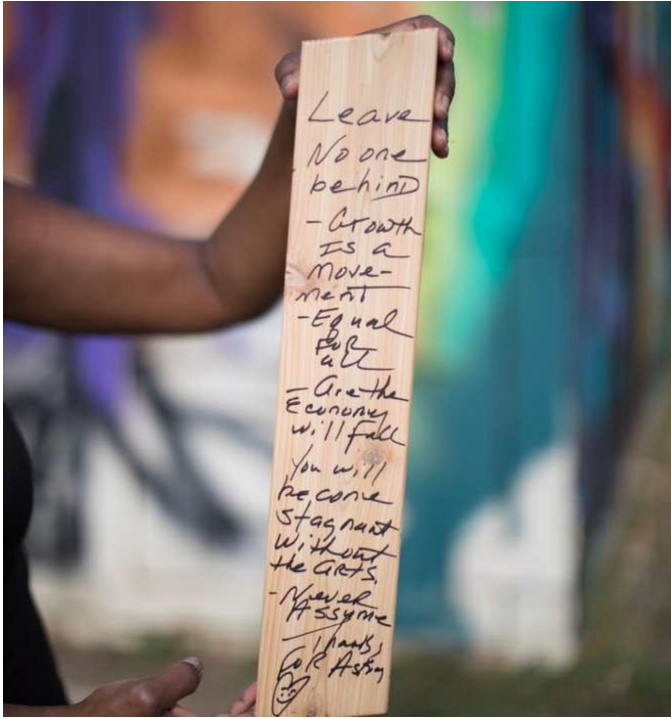 Leave
No one
behind
- Growth
Is a
move-
ment
- Equal
FOR
all
- Are the
Economy
will fall
You will
become
stagnant
without
the ARTS.
- Never
Assume
- Thanks,
FOR Asking